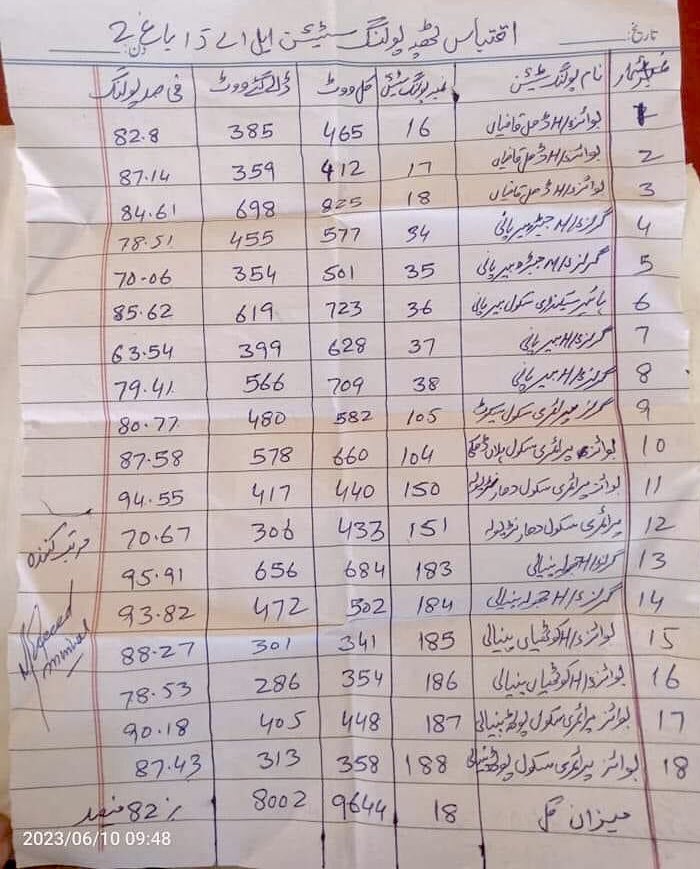 اقتباس ٹھپہ پولنگ سٹیشن ایل اے 15 باغ 2
تاریخ: دن:
نمبر شمار نام پولنگ سٹیشن نمبر پولنگ سٹیشن کل ووٹ ڈالے گئے ووٹ فی صد پولنگ
1 بوائز H/S ڈھل قاضیاں 16 465 385 82.8
2 بوائز H/S ڈھل قاضیاں 17 412 359 87.14
3 بوائز H/S ڈھل قاضیاں 18 825 698 84.61
4 گرلز M/S ہیرپانی 34 577 455 78.51
5 گرلز M/S ہیرپانی 35 501 354 70.06
6 ہائیر سیکنڈری سکول بیرپانی 36 723 619 85.62
7 گرلز H/S بیرپانی 37 628 399 63.54
8 گرلز H/S بیرپانی 38 709 566 79.41
9 گرلز پرائمری سکول 105 582 480 80.77
10 بوائز پرائمری سکول 104 660 578 87.58
11 بوائز پرائمری سکول 150 440 417 94.55
12 پرائمری سکول 151 433 306 70.67
13 گرلز H/S بنیالی 183 684 656 95.91
14 گرلز H/S بنیالی 184 502 472 93.82
15 بوائز H/S کوٹلیاں بنیالی 185 341 301 88.27
16 بوائز H/S کوٹلیاں بنیالی 186 354 286 78.53
17 بوائز پرائمری سکول بنیالی 187 448 405 90.18
18 بوائز پرائمری سکول بنیالی 188 358 313 87.43
میزان کل 18 9644 8002 82% فیصد
مرتب کنندہ
2023/06/10 09:48